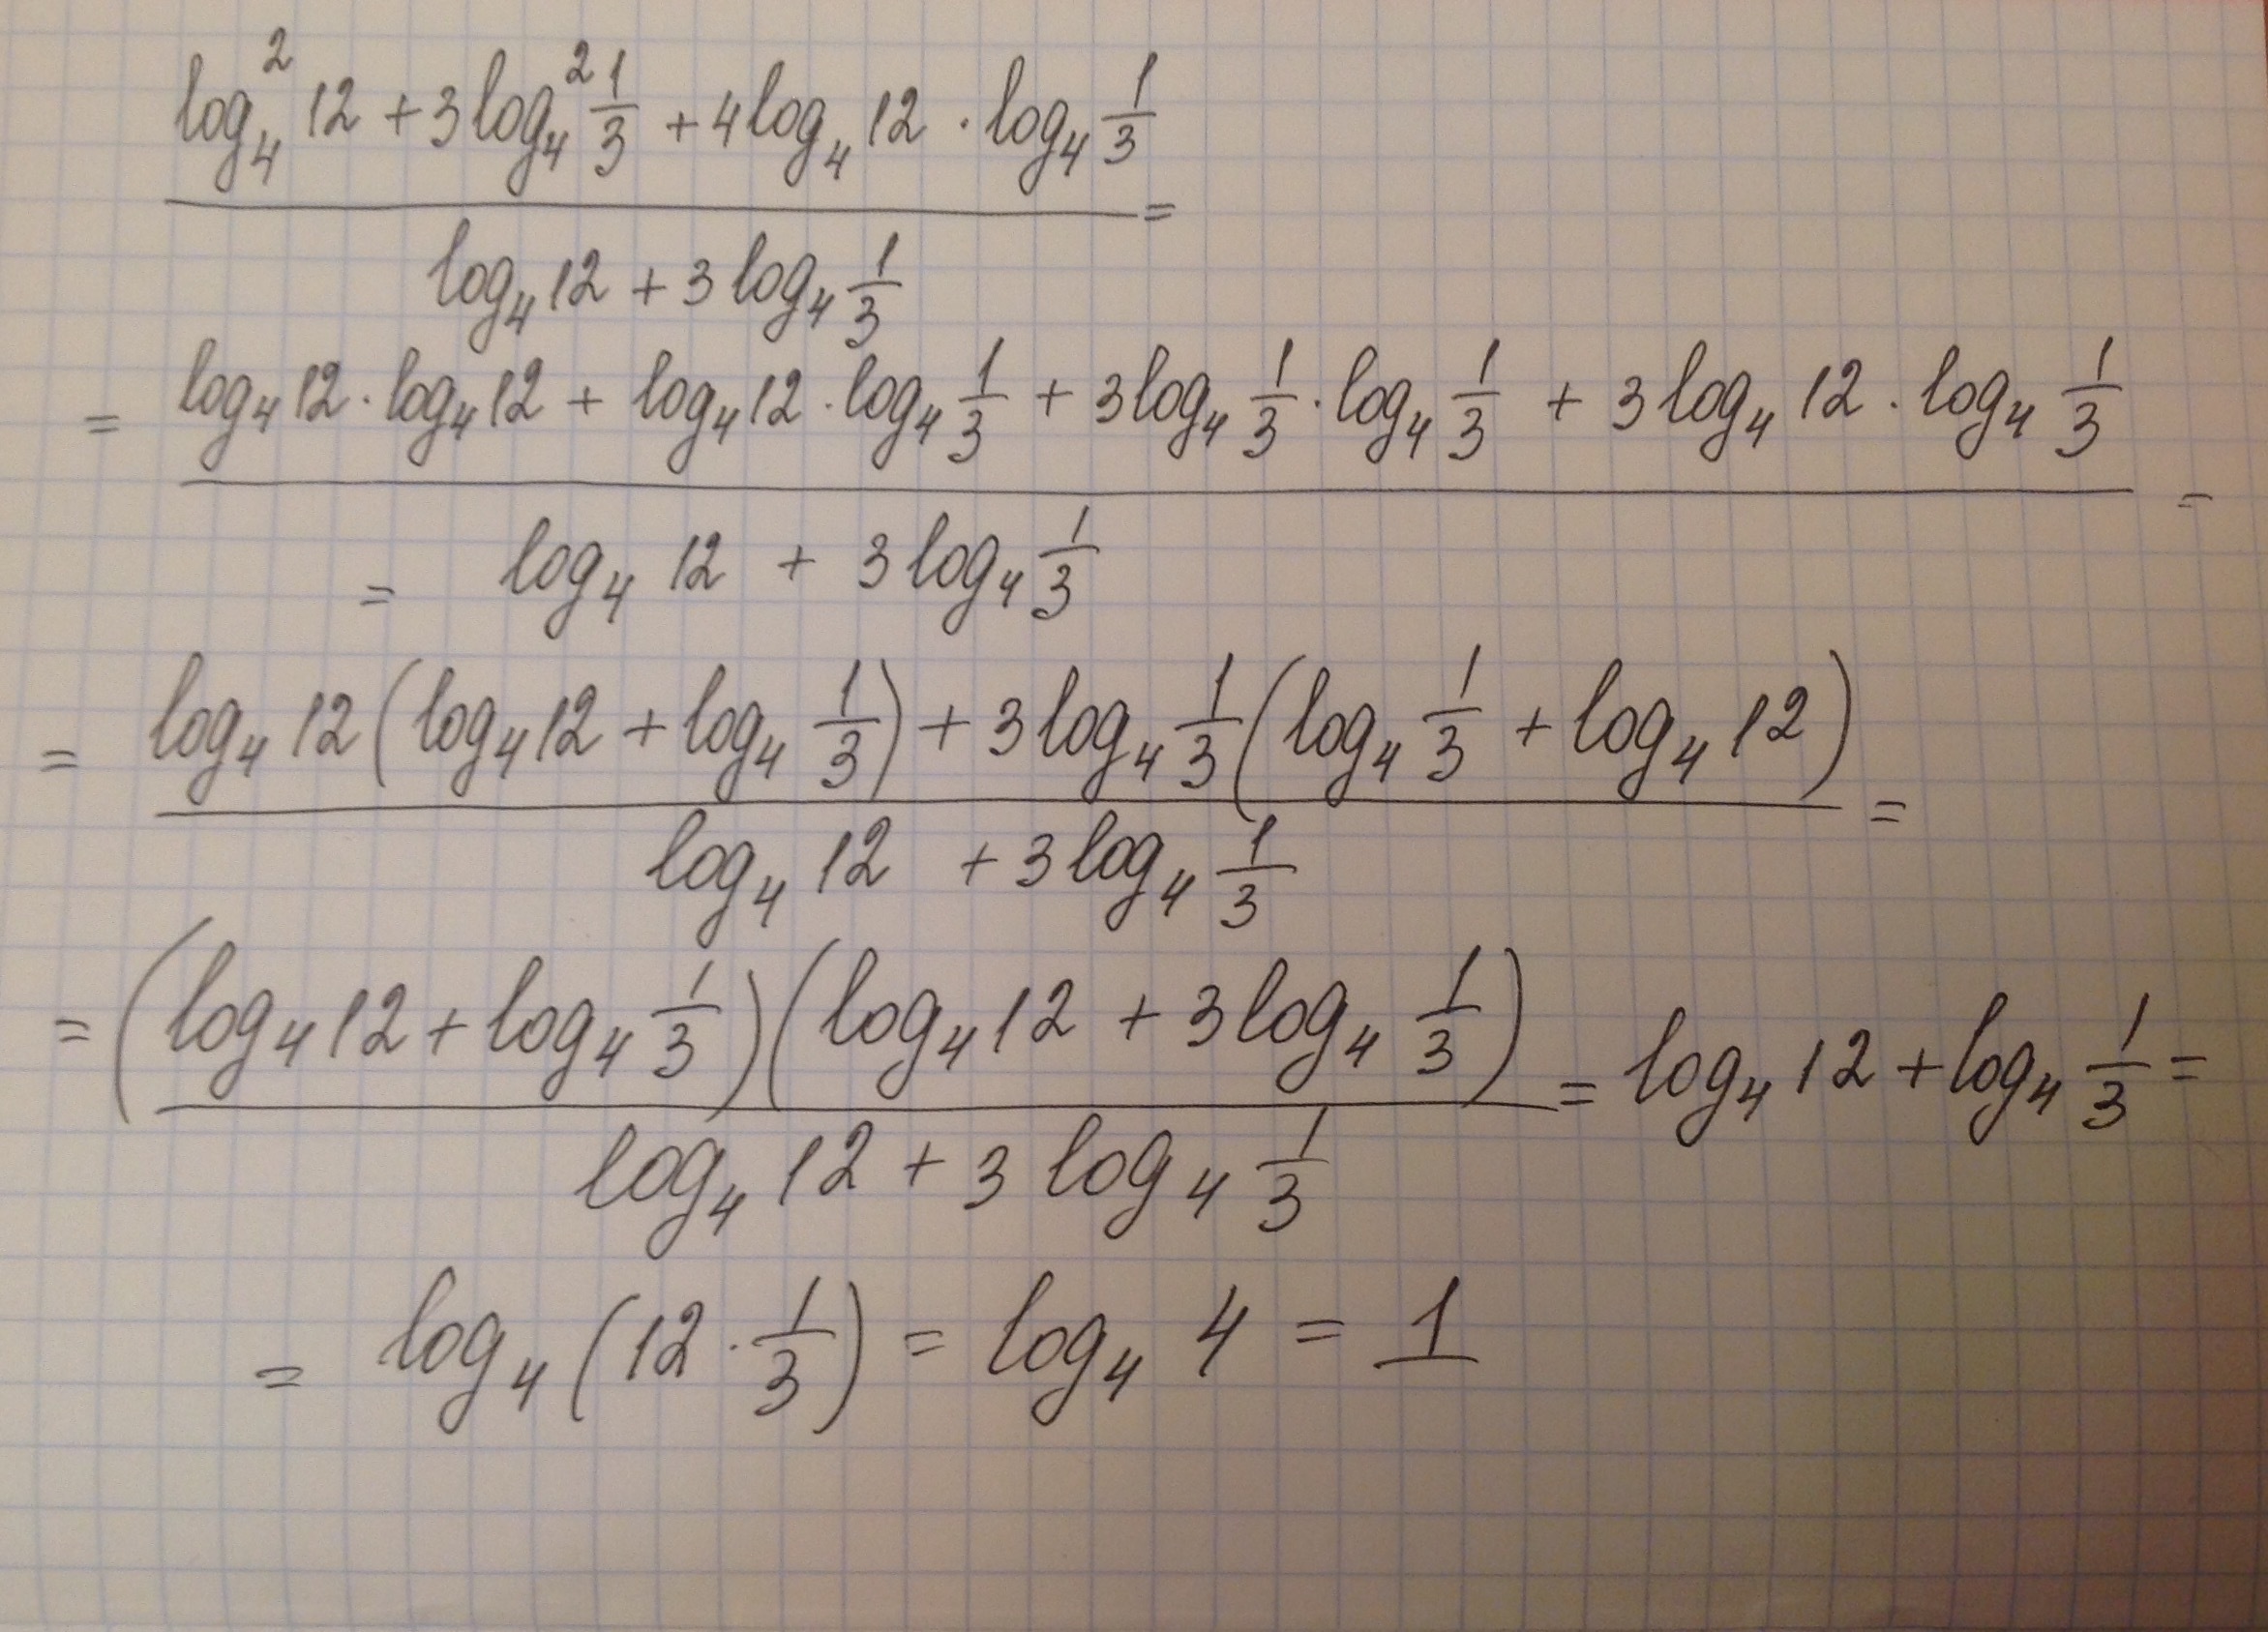 log₄² 12 + 3 log₄² 1/3 + 4 log₄ 12 · log₄ 1/3 =
log₄ 12 + 3 log₄ 1/3
= log₄ 12 · log₄ 12 + log₄ 12 · log₄ 1/3 + 3 log₄ 1/3 · log₄ 1/3 + 3 log₄ 12 · log₄ 1/3 =
= log₄ 12 + 3 log₄ 1/3
= log₄ 12 (log₄ 12 + log₄ 1/3) + 3 log₄ 1/3 (log₄ 1/3 + log₄ 12) =
log₄ 12 + 3 log₄ 1/3
= (log₄ 12 + log₄ 1/3)(log₄ 12 + 3 log₄ 1/3) = log₄ 12 + log₄ 1/3 =
log₄ 12 + 3 log₄ 1/3
= log₄ (12 · 1/3) = log₄ 4 = 1